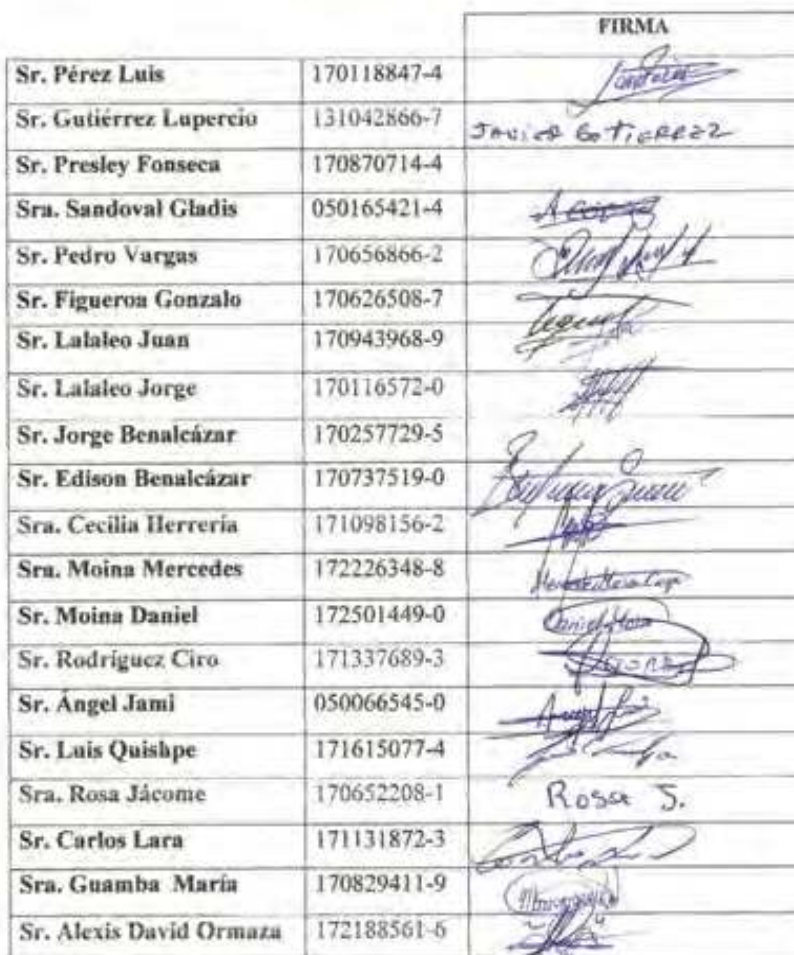 FIRMA
Sr. Pérez Luis 170118847-4
Sr. Gutiérrez Lupercio 131042866-7 Javier Gutierrez
Sr. Presley Fonseca 170870714-4
Sra. Sandoval Gladis 050165421-4
Sr. Pedro Vargas 170656866-2
Sr. Figueroa Gonzalo 170626508-7
Sr. Lalaleo Juan 170943968-9
Sr. Lalaleo Jorge 170116572-0
Sr. Jorge Benalcázar 170257729-5
Sr. Edison Benalcázar 170737519-0
Sra. Cecilia Herrería 171098156-2
Sra. Moina Mercedes 172226348-8
Sr. Moina Daniel 172501449-0
Sr. Rodríguez Ciro 171337689-3
Sr. Ángel Jami 050066545-0
Sr. Luis Quishpe 171615077-4
Sra. Rosa Jácome 170652208-1 Rosa J.
Sr. Carlos Lara 171131872-3
Sra. Guamba María 170829411-9
Sr. Alexis David Ormaza 172188561-6